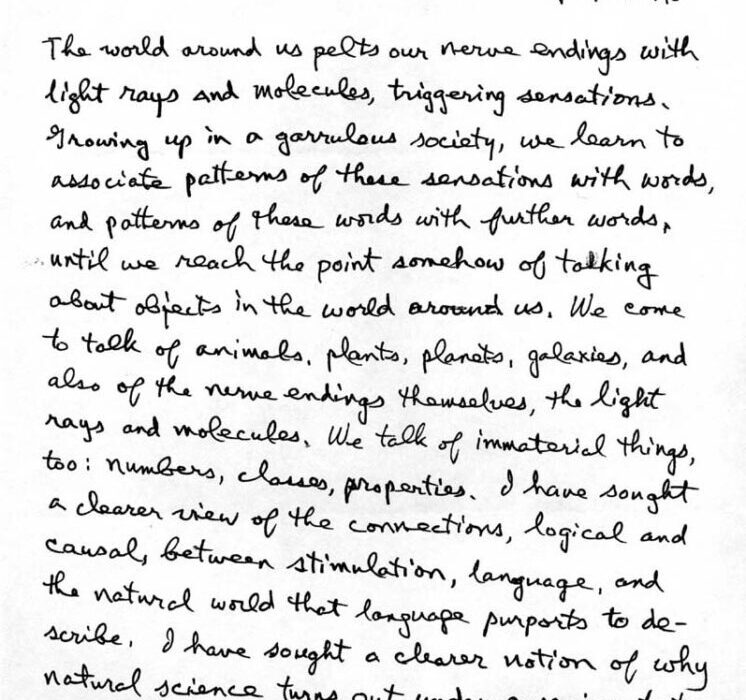 The world around us pelts our nerve endings with
light rays and molecules, triggering sensations.
Growing up in a garrulous society, we learn to
associate patterns of these sensations with words,
and patterns of these words with further words,
until we reach the point somehow of talking
about objects in the world around us. We come
to talk of animals, plants, planets, galaxies, and
also of the nerve endings themselves, the light
rays and molecules. We talk of immaterial things,
too: numbers, classes, properties. I have sought
a clearer view of the connections, logical and
causal, between stimulation, language, and
the natural world that language purports to de-
scribe. I have sought a clearer notion of why
natural science turns out